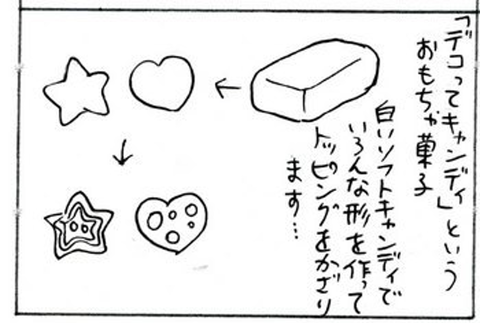 「デコってキャンディ」という
おもちゃ菓子
白いソフトキャンディで
いろんな形を作って
トッピングをかざり
ます…